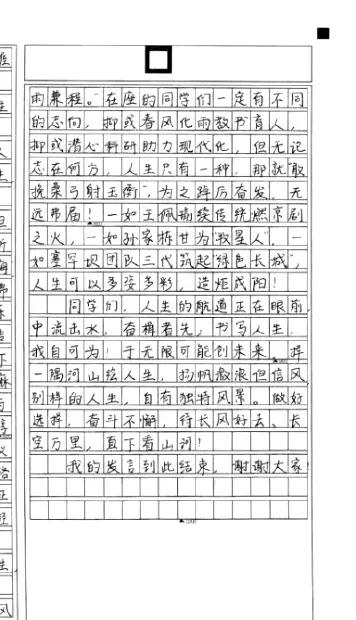 雨兼程。”在座的同学们一定有不同
的志向，抑或春风化雨教书育人，
抑或潜心科研助力现代化，但无论
志在何方，人生只有一种，那就“敢
挽桑弓射玉衡”，为之踔厉奋发，无
远弗届！一如王佩瑜续传统燃京剧
之火，一如孙家栋甘为“牧星人”，一
如塞罕坝团队三代筑起“绿色长城”，
人生可以多姿多彩，造炬成阳！
同学们，人生的航道正在眼前，
中流击水，奋楫者先，书写人生，
我自可为！于无限可能创未来，择
一隅河山绘人生，扬帆激浪但信风，
别样的人生，自有独特风景。做好
选择，奋斗不懈，待长风好去，长
空万里，直下看山河！
我的发言到此结束，谢谢大家！